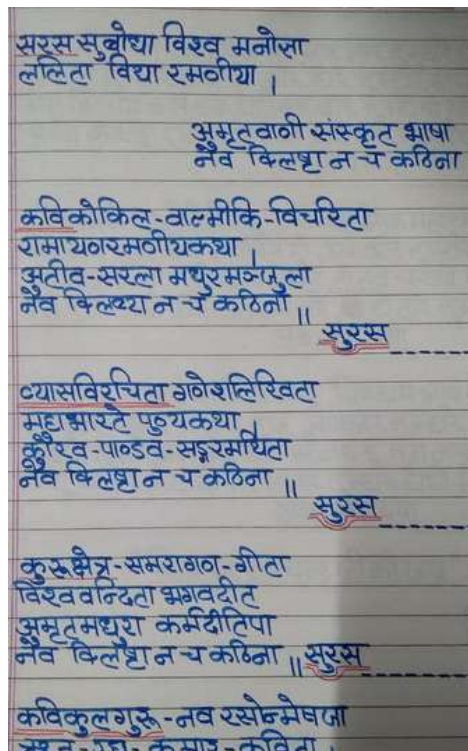 सरस सुबोधा विश्व मनोज्ञा
ललिता विद्या रमणीया ।
अमृतवाणी संस्कृत भाषा
नैव क्लिष्टा न च कठिना
कविकोकिल-वाल्मीकि-विचरिता
रामायणरमणीयकथा ।
अतीव-सरला मधुरमञ्जुला
नैव क्लिष्टा न च कठिना ॥
सुरस ------
व्यासविरचिता गणेशलिखिता
महाभारते पुण्यकथा ।
कौरव-पाण्डव-सङ्गरमथिता
नैव क्लिष्टा न च कठिना ॥
सुरस ------
कुरूक्षेत्र-समरागण-गीता
विश्ववन्दिता भगवदीत
अमृतमधुरा कर्मदीतिपा
नैव क्लिष्टा न च कठिना ॥ सुरस ------
कविकुलगुरू-नव रसोन्मेषजा
कुमार-कविता ।